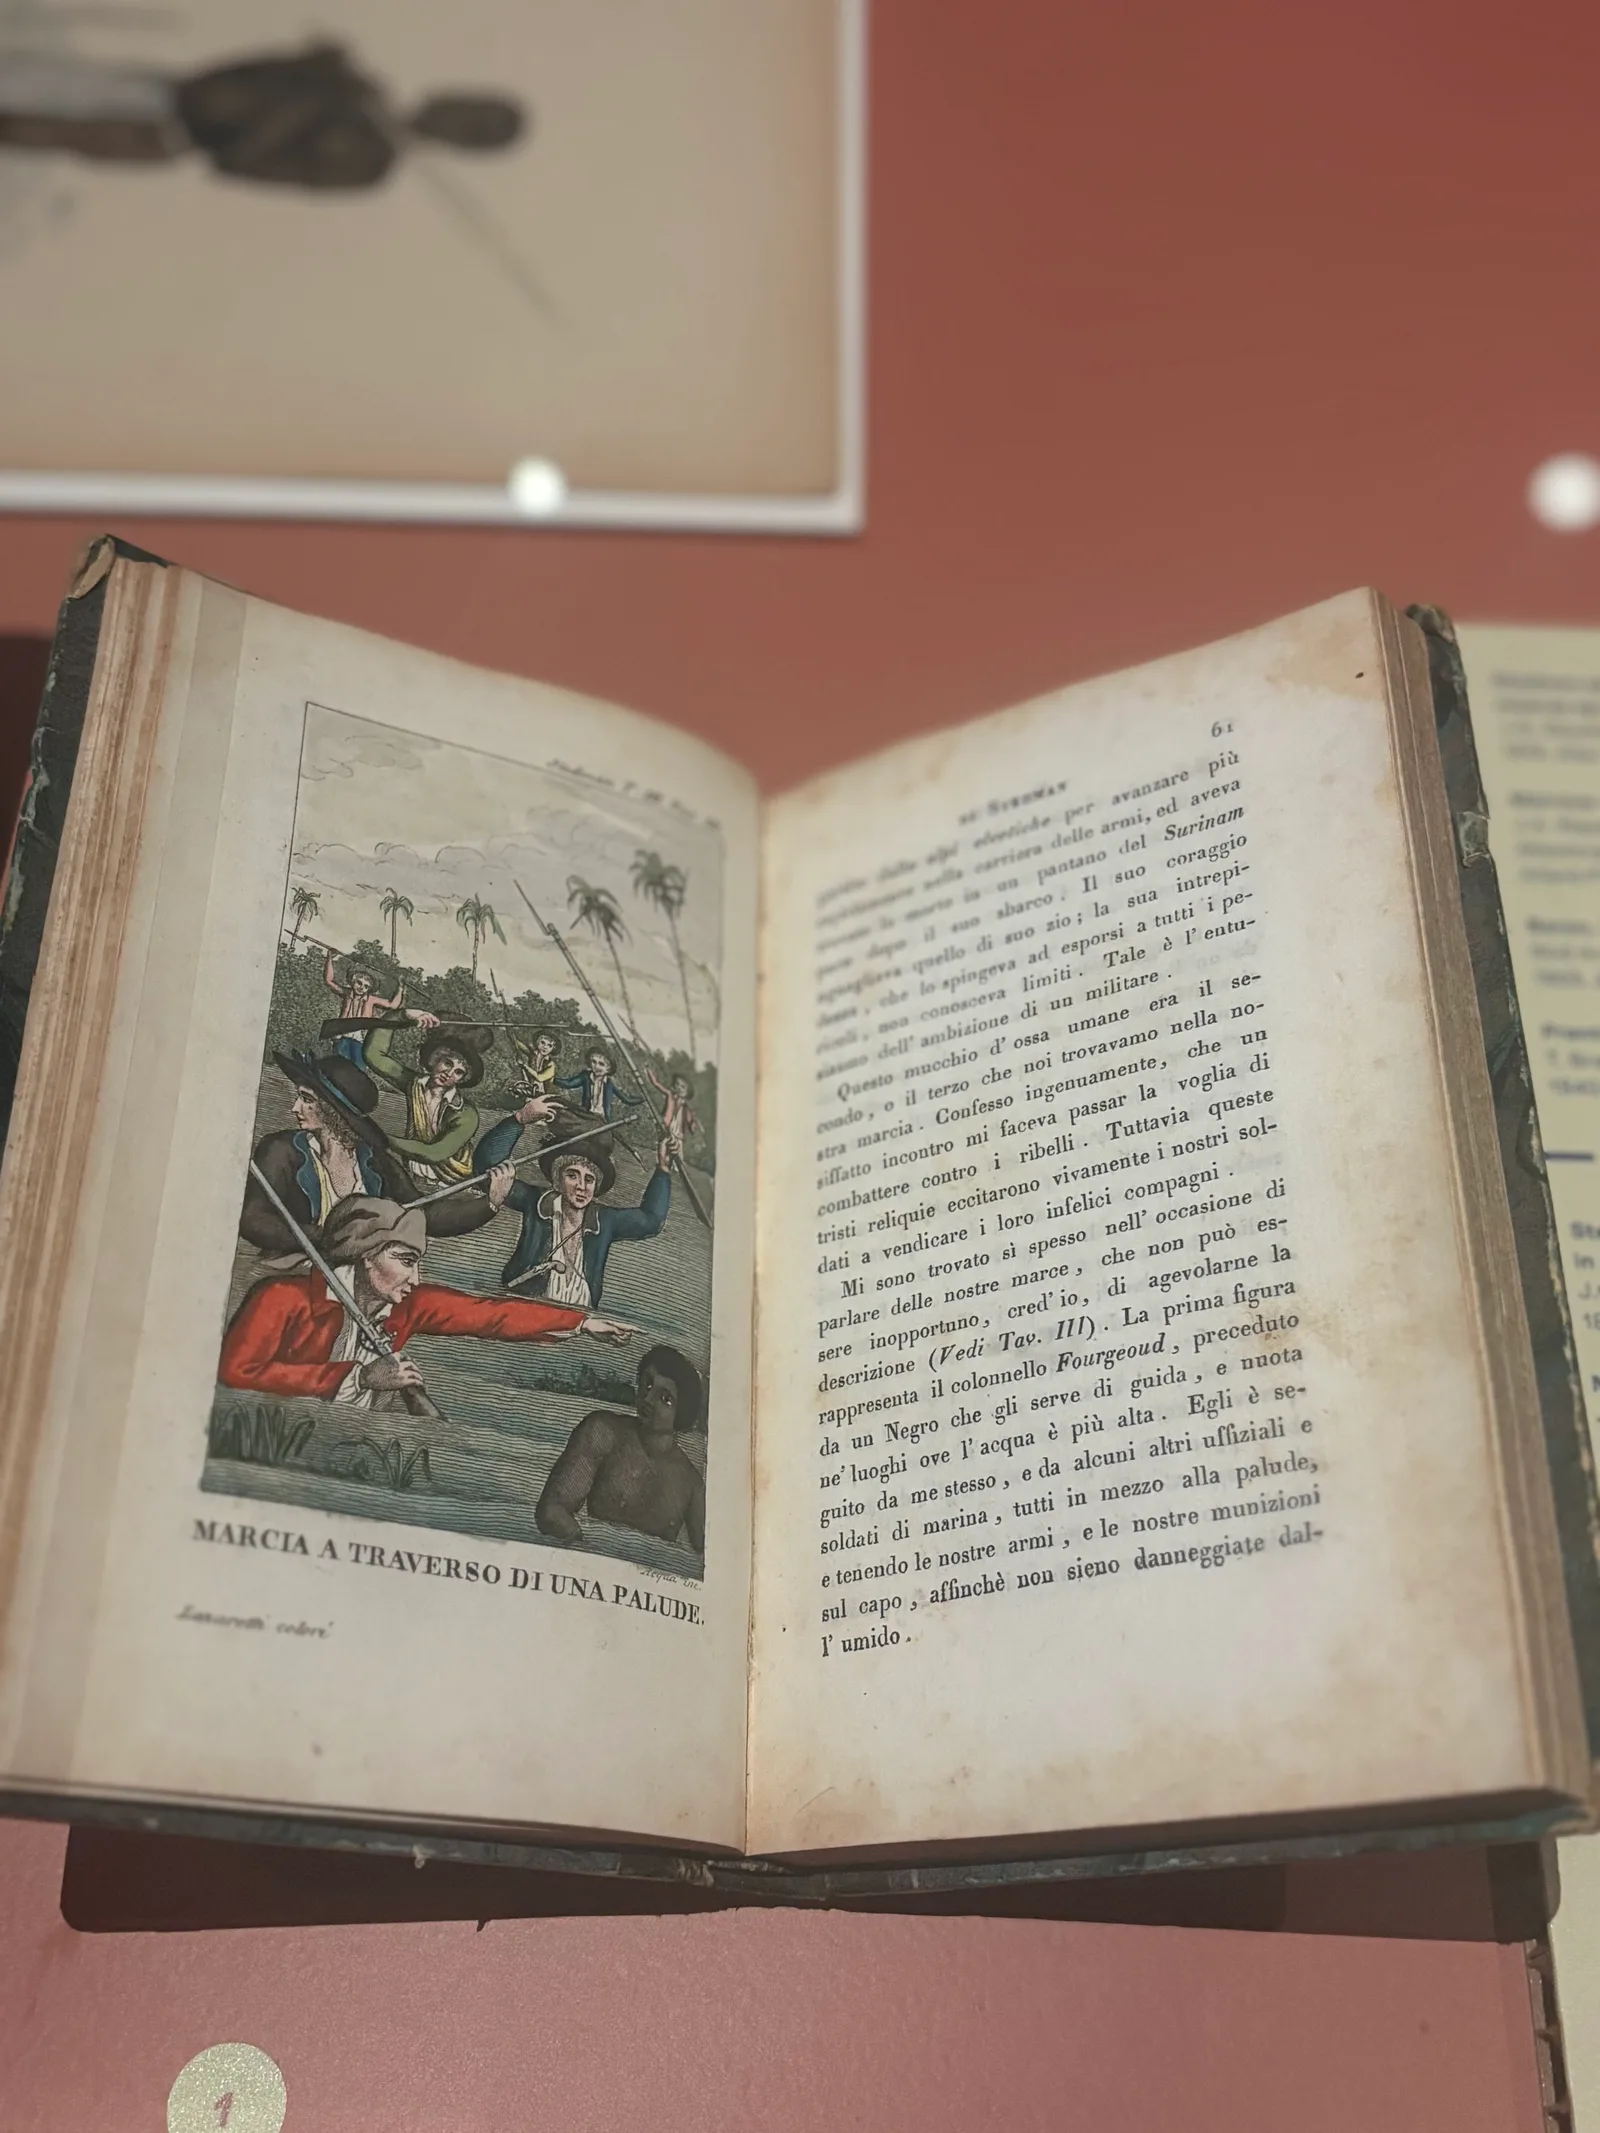 MARCIA A TRAVERSO DI UNA PALUDE.
Lazaretti colorì
Acqua inc.
61
DI STEDMAN
alpi elvetiche per avanzare più
nella carriera delle armi, ed aveva
la morte in un pantano del Surinam
dopo il suo sbarco. Il suo coraggio
agguagliava quello di suo zio; la sua intrepi-
dezza, che lo spingeva ad esporsi a tutti i pe-
ricoli, non conosceva limiti. Tale è l'entu-
siasmo dell'ambizione di un militare.
Questo mucchio d'ossa umane era il se-
condo, o il terzo che noi trovavamo nella no-
stra marcia. Confesso ingenuamente, che un
siffatto incontro mi faceva passar la voglia di
combattere contro i ribelli. Tuttavia queste
tristi reliquie eccitarono vivamente i nostri sol-
dati a vendicare i loro infelici compagni.
Mi sono trovato sì spesso nell'occasione di
parlare delle nostre marce, che non può es-
sere inopportuno, cred'io, di agevolarne la
descrizione (Vedi Tav. III). La prima figura
rappresenta il colonnello Fourgeoud, preceduto
da un Negro che gli serve di guida, e nuota
ne'luoghi ove l'acqua è più alta. Egli è se-
guito da me stesso, e da alcuni altri uffiziali e
soldati di marina, tutti in mezzo alla palude,
e tenendo le nostre armi, e le nostre munizioni
sul capo, affinchè non sieno danneggiate dal-
l'umido.
1